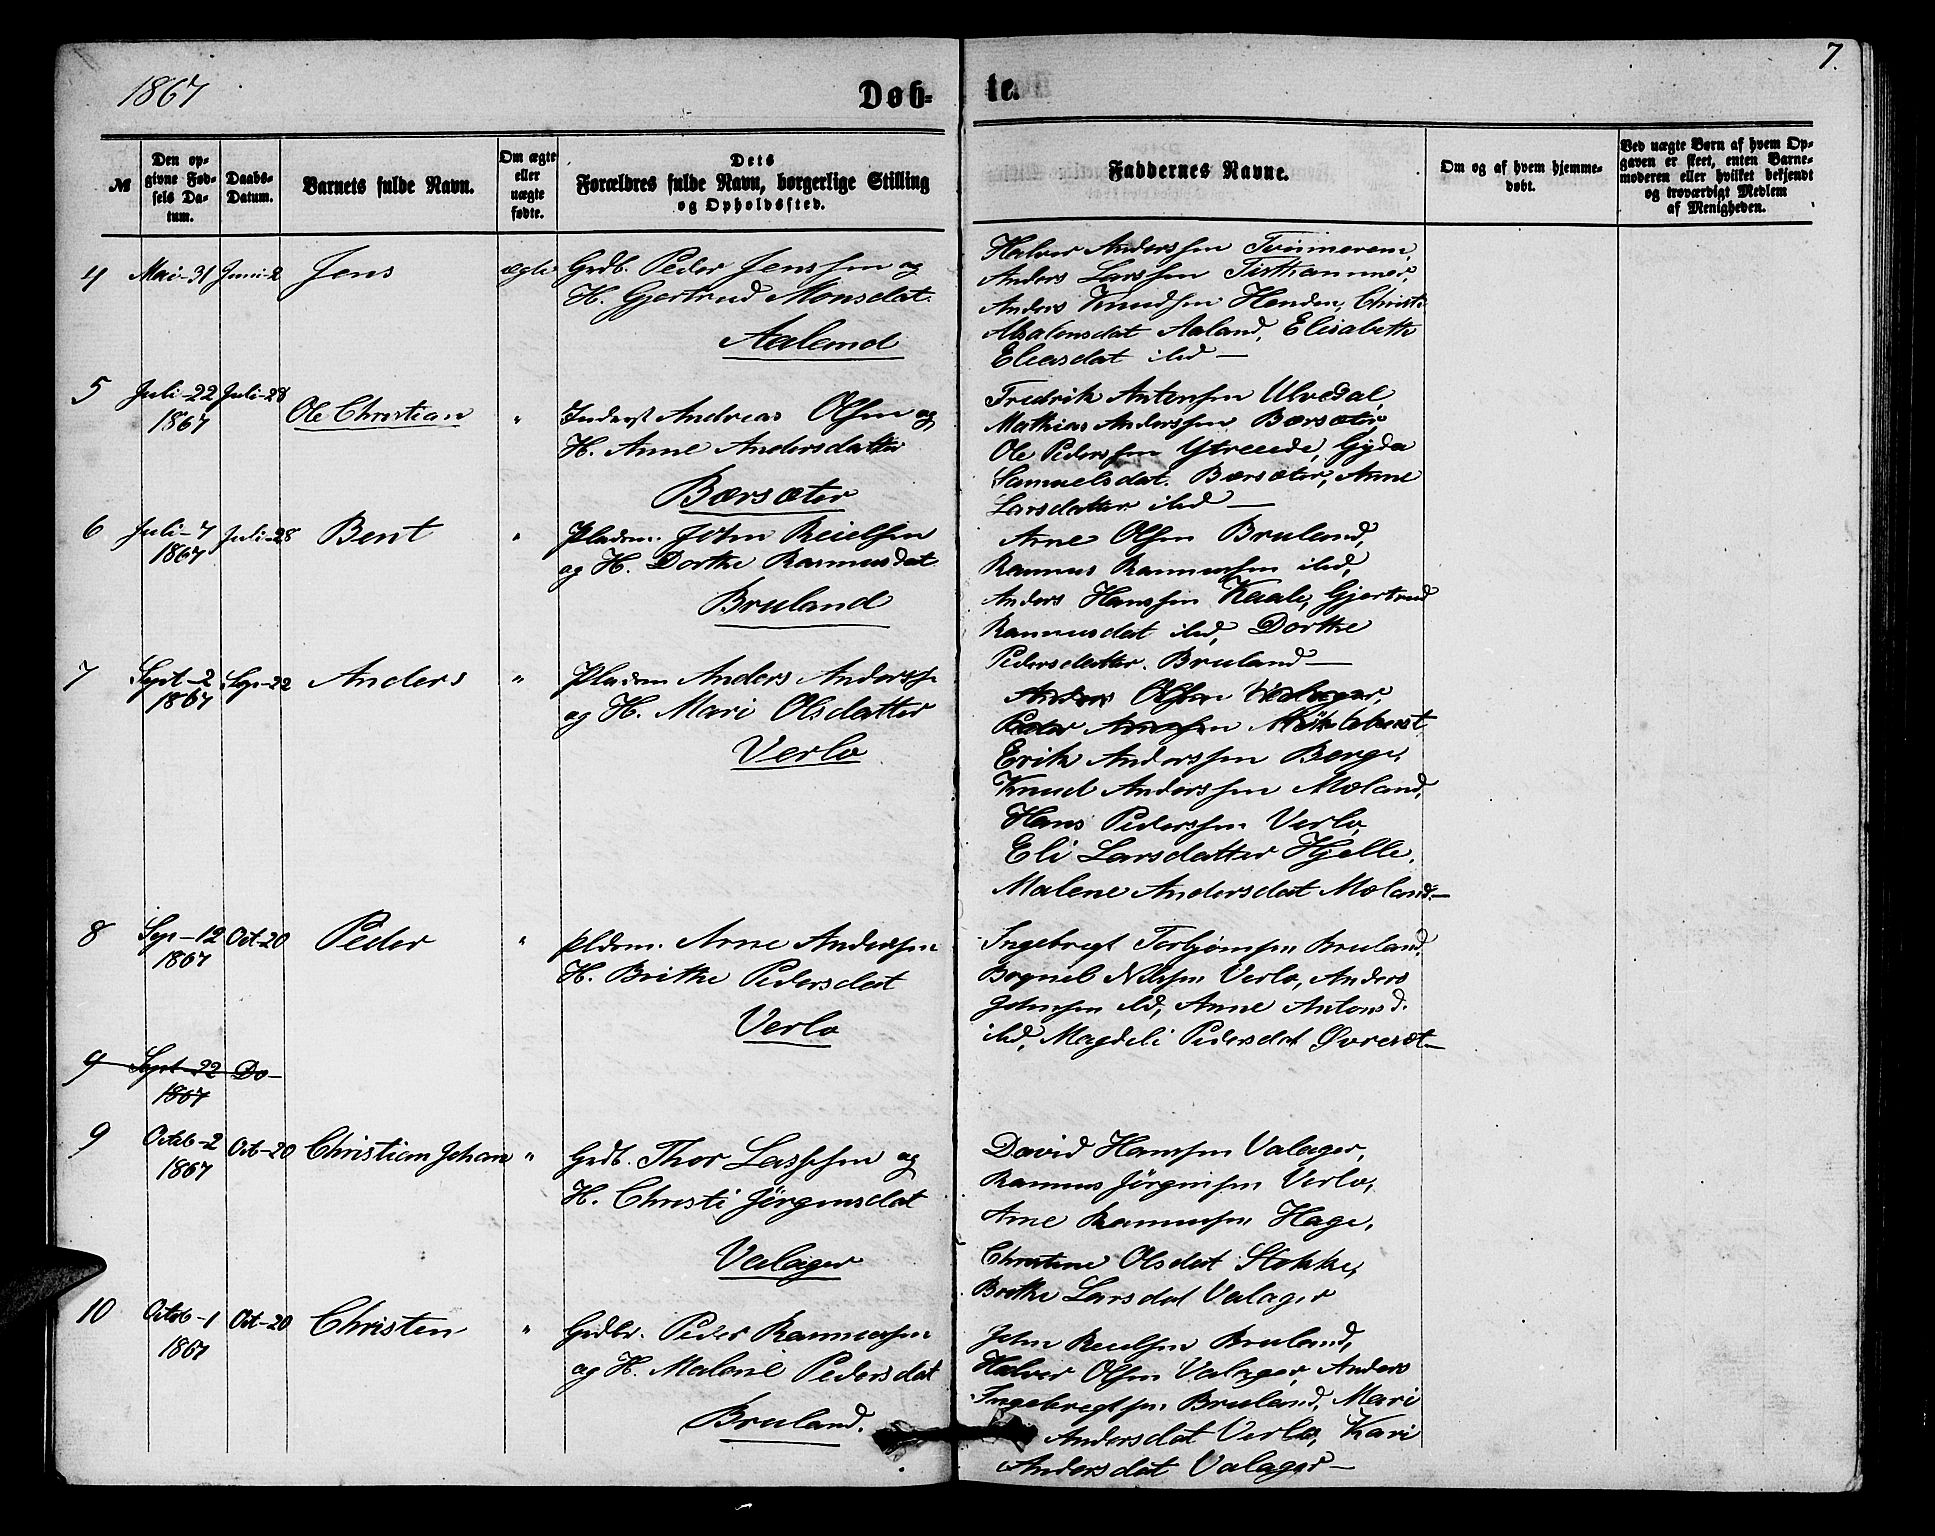 1867
7.
Døb-
te.
№
Den op-
givne Fød-
sels Da-
tum.
Daabs-
Datum.
Barnets fulde Navn.
Om ægte
eller
uægte
fødte.
Dets
Forældres fulde Navn, borgerlige Stilling
og Opholdssted.
Faddernes Navne.
Om og af hvem hjemme-
døbt.
Ved uægte Børn af hvem Op-
gaven er skeet, enten Barne-
moderen eller hvilket bekjendt
og troværdigt Medlem
af Menigheden.
4 Mai-31 Juni-2 Jens ægte Grdb. Peder Jenssen og
H. Gjertrud Monsdat.
Aaland
Halvor Anderssen
Anders Larssen
Anders Knudsen Henden, Christi
Absalonsdat Aaland, Elisabeth
Eliasdat ibd —
5 Juli-22 Juli-28
1867
Ole Christian " Inderst Andreas Olsen og
H. Anne Andersdatter
Bærsæter
Fredrik Antonsen Ulvedal,
Mathias Anderssen Bærsæter,
Ole Pederssen Ytreeide, Gyda
Samuelsdat. Bærsæter, Anne
Larsdatter ibd —
6 Juli-7 Juli-28 Bent " pladsm. John Reielsen
1867
og H. Dorthe Rasmusdat
Bruland
Arne Olsen Bruland,
Rasmus Rasmussen ibd,
Anders Hanssen Kaale, Gjertrud
Rasmusdat ibd, Dorthe
Pedersdatter. Bruland —
7 Sept-2 Sep-22 Anders " pladsm Anders Anderss
1867
og H. Mari Olsdatter
Verlo
Anders Olsen Valager,
Peder Arnesen Myklebust
Erik Anderssen Berge,
Knud Anderssen Moland,
Hans Pederssen Verlo,
Eli Larsdatter Hjelle,
Malene Andersdat Moland —
8 Sep-12 Oct-20 Peder " pldsm. Arne Anderssen
1867
H. Brithe Pedersdat
Verlo
Ingebregt Torbjørnsen Bruland,
Nilssen Verlo, Anders
Johnsen ibd, Anne Antonsd.
ibd, Magdeli Pedersdat Øvresæt —
9 Sept-22 Do —
1867
9 Octob-2 Oct-20 Christian Johan " Grdb. Thor Lassesen og
1867
H. Christi Jørgensdat
Valager
David Hanssen Valager,
Rasmus Jørgensen Verlo,
Arne Rasmussen Hage,
Christine Olsdat Stokke,
Brithe Larsdat Valager
10 Octob-1 Oct-20 Christen " Grdbr. Peder Rasmussen
1867
og H. Malene Pedersdat
Bruland.
John Reielsen Bruland,
Halvor Olsen Valager, Anders
Ingebregtsen Bruland, Mari
Andersdat Verlo, Kari
Andersdat Valager —